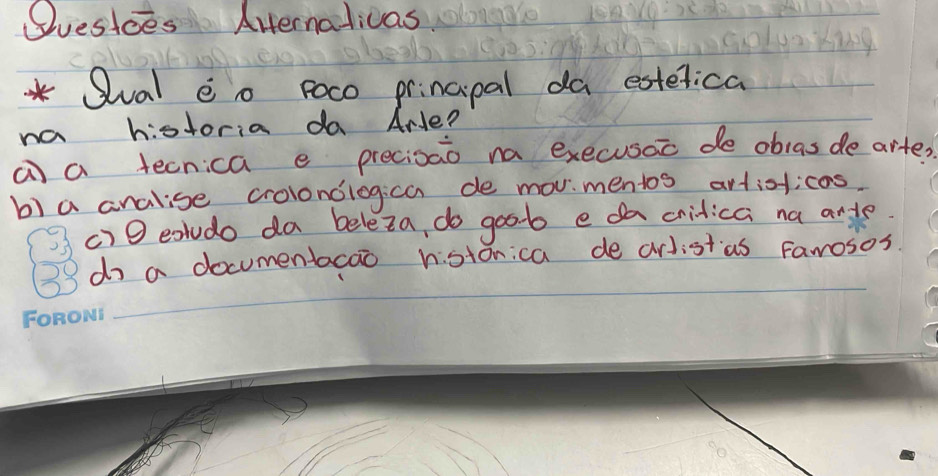 Questões Alternativas.
* Qual é o Foco principal da estética
na historia da Arte?
a) a tecnica e precisão na execusão de obras de arte?
b) a analise cronológica de movimentos artisticos.
c) O estudo da beleza, do gosto e da critica na arte.
d) a documentação histórica de artistas Famosos.
FORONI